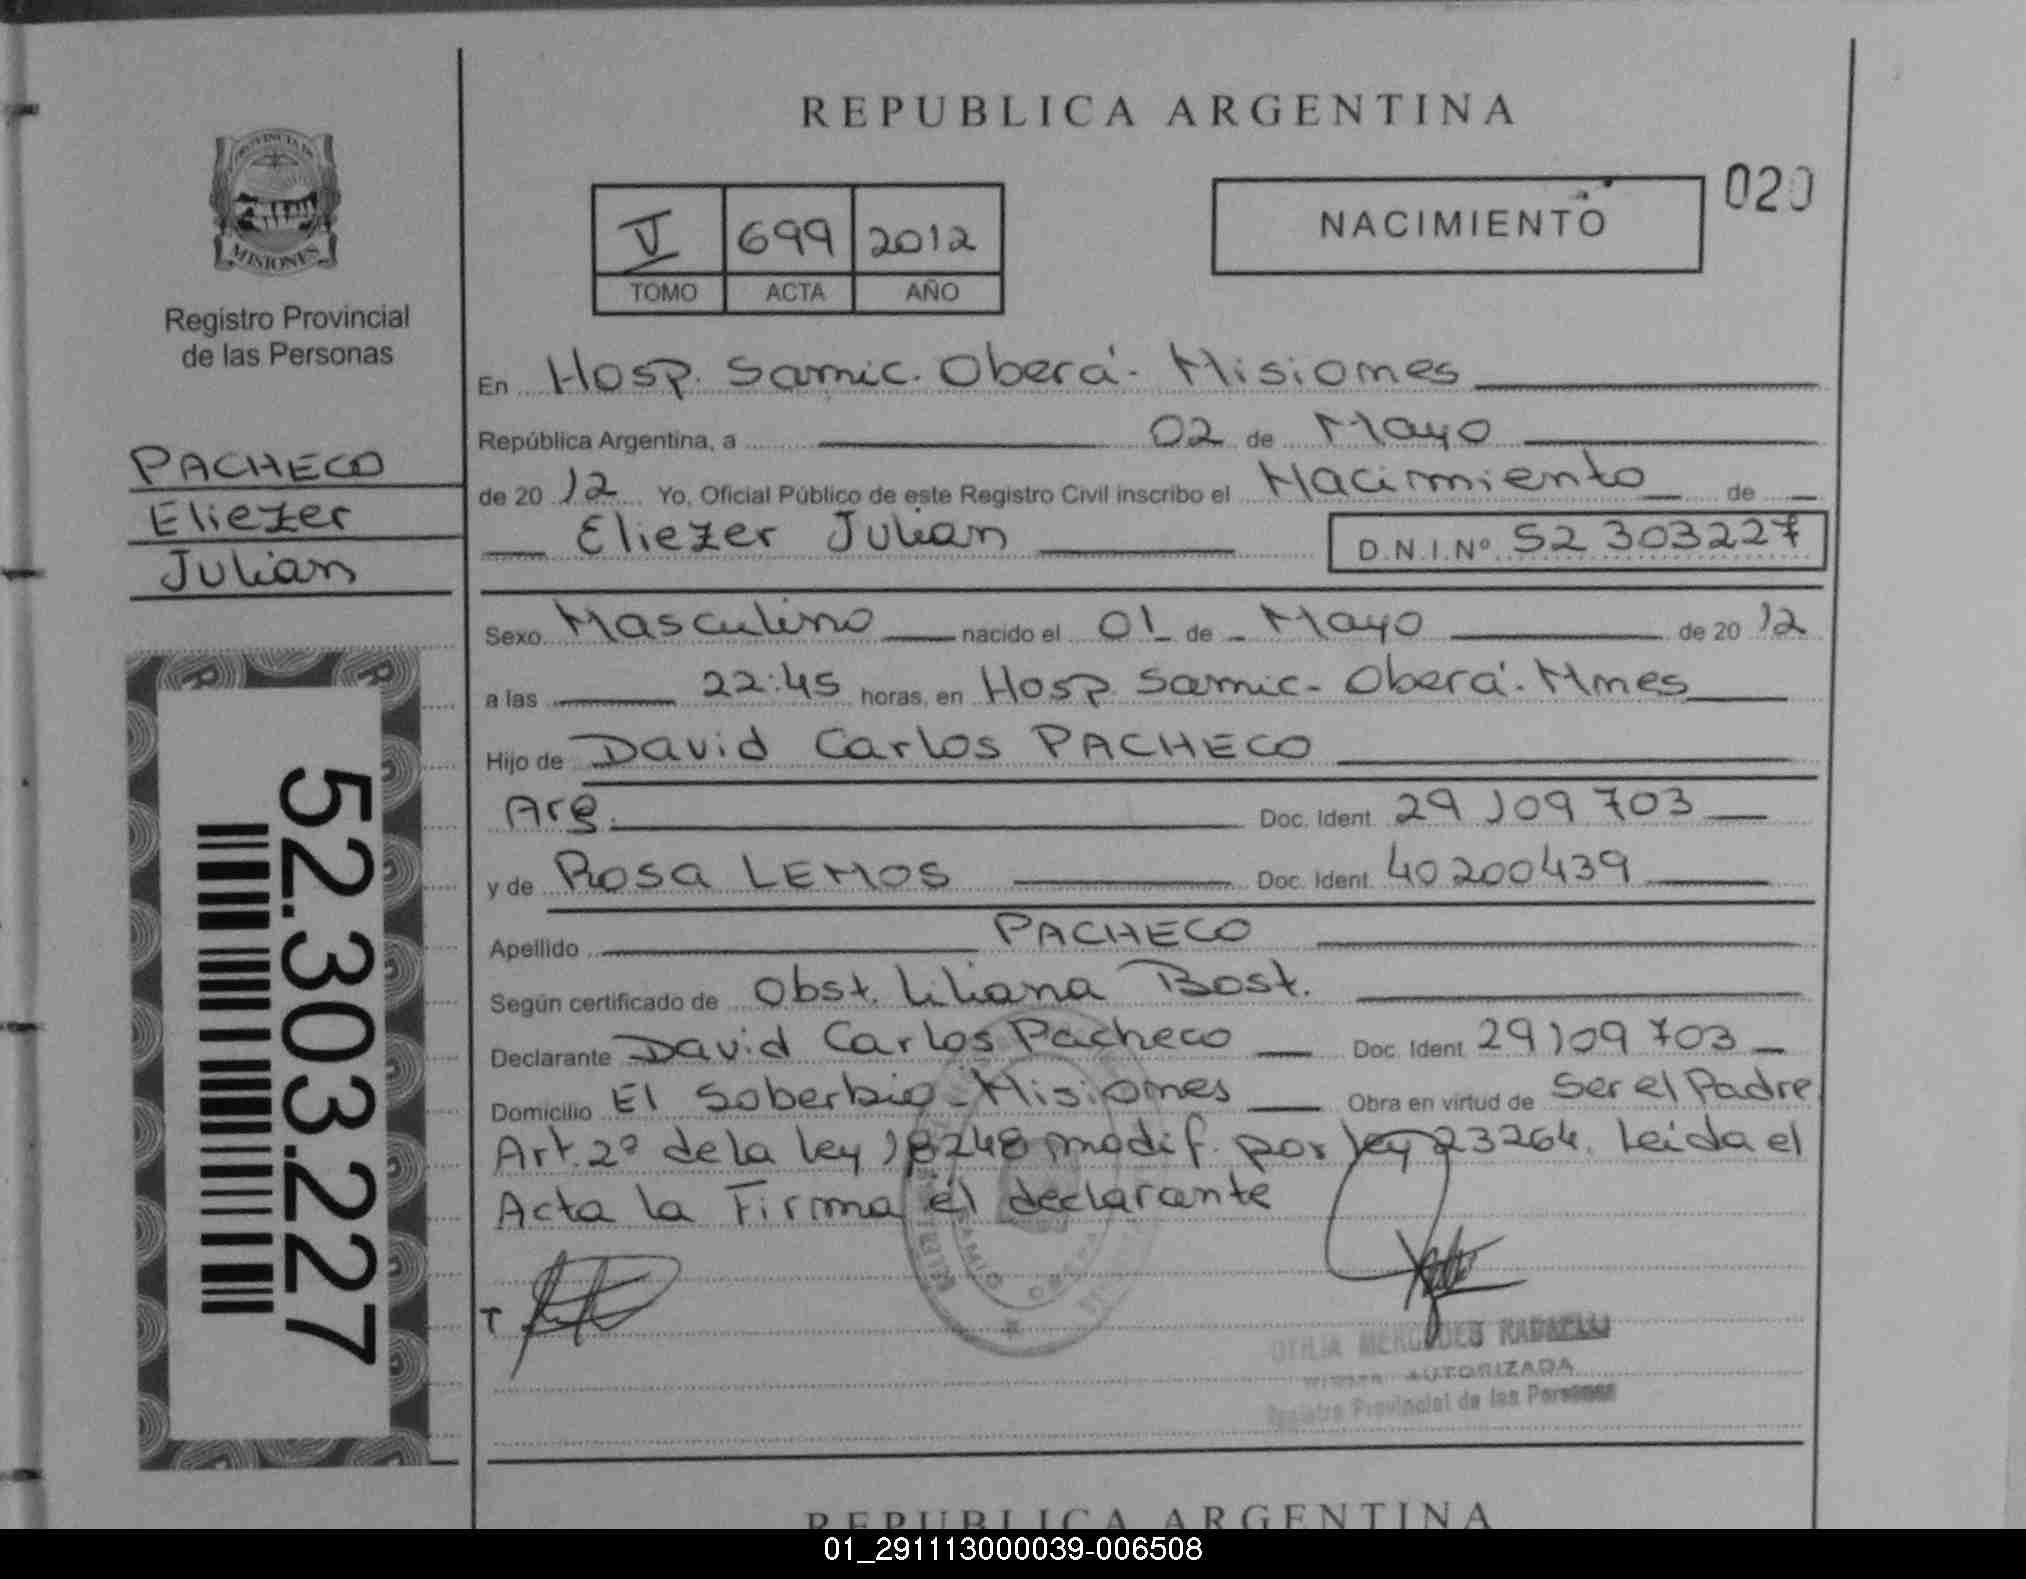 REPUBLICA ARGENTINA
PROVINCIA DE
MISIONES
Registro Provincial
de las Personas
V 699 2012
TOMO ACTA AÑO
NACIMIENTO
020
PACHECO
Eliezer
Julian
52.303.227
En Hosp. Samic. Oberá - Misiones
República Argentina, a 02 de Mayo
de 20 12 Yo, Oficial Público de este Registro Civil inscribo el Nacimiento de
Eliezer Julian D.N.I.Nº 52 303227
Sexo Masculino nacido el 01 de Mayo de 20 12
a las 22:45 horas, en Hosp. Samic - Oberá - Mnes
Hijo de David Carlos PACHECO
Arg. Doc. Ident 29 109 703
y de Rosa LEMOS Doc. Ident. 40200439
Apellido PACHECO
Según certificado de Obst. Liliana Bost.
Declarante David Carlos Pacheco Doc. Ident 29109 703
Domicilio El Soberbio - Misiones Obra en virtud de Ser el Padre
Art. 2º de la Ley 18248 modif. por ley 23264. Leida el
Acta la Firma el declarante
T
MERCEDES
AUTORIZADA
Registro Provincial de las Personas
REPUBLICA ARGENTINA
01_291113000039-006508